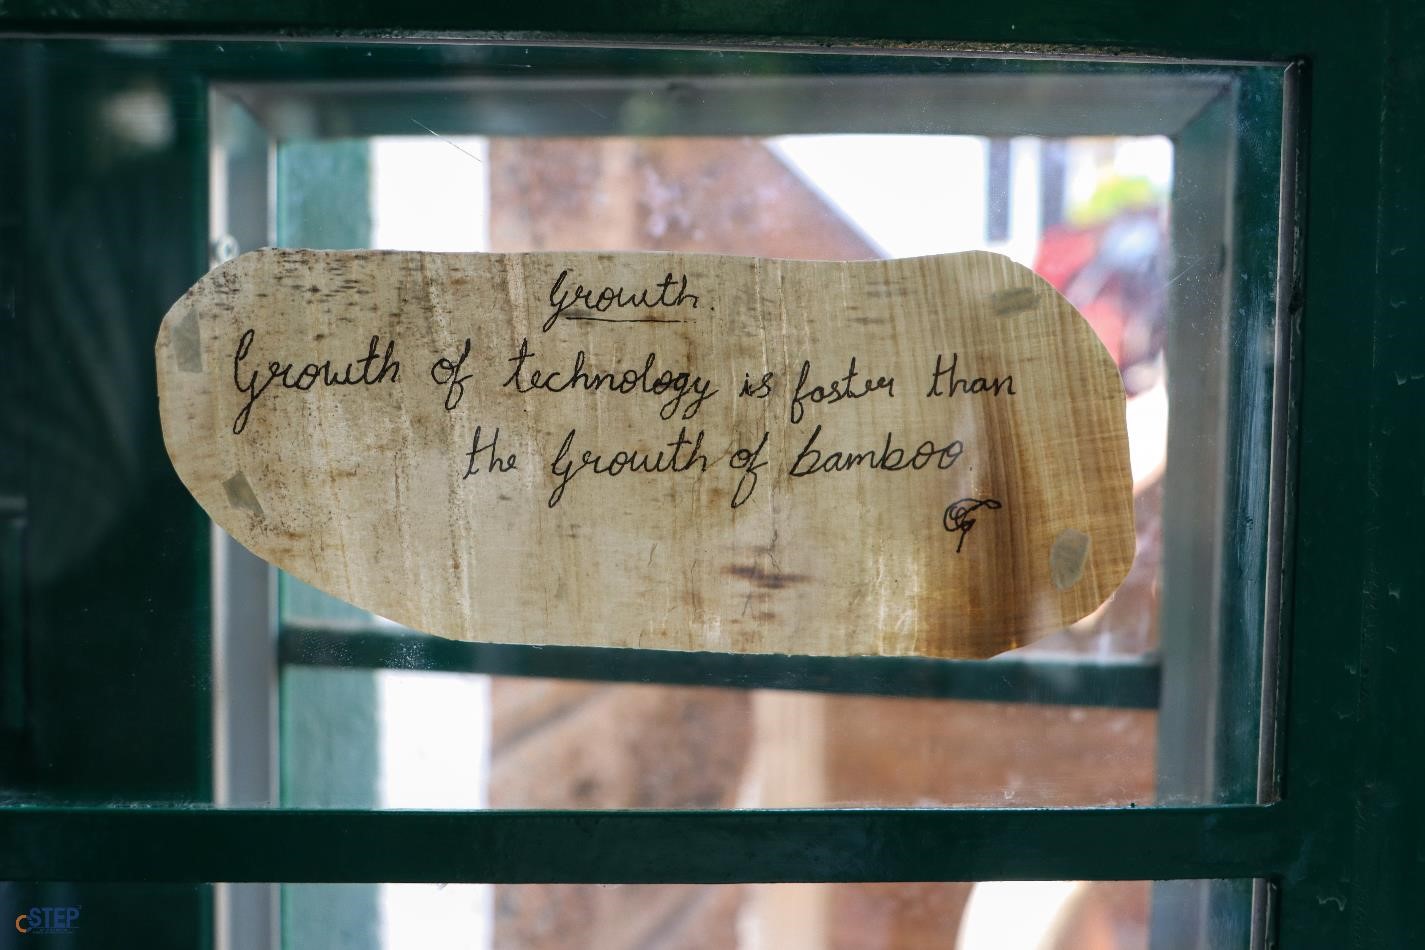 Growth.
Growth of technology is faster than
the Growth of bamboo.
CSTEP